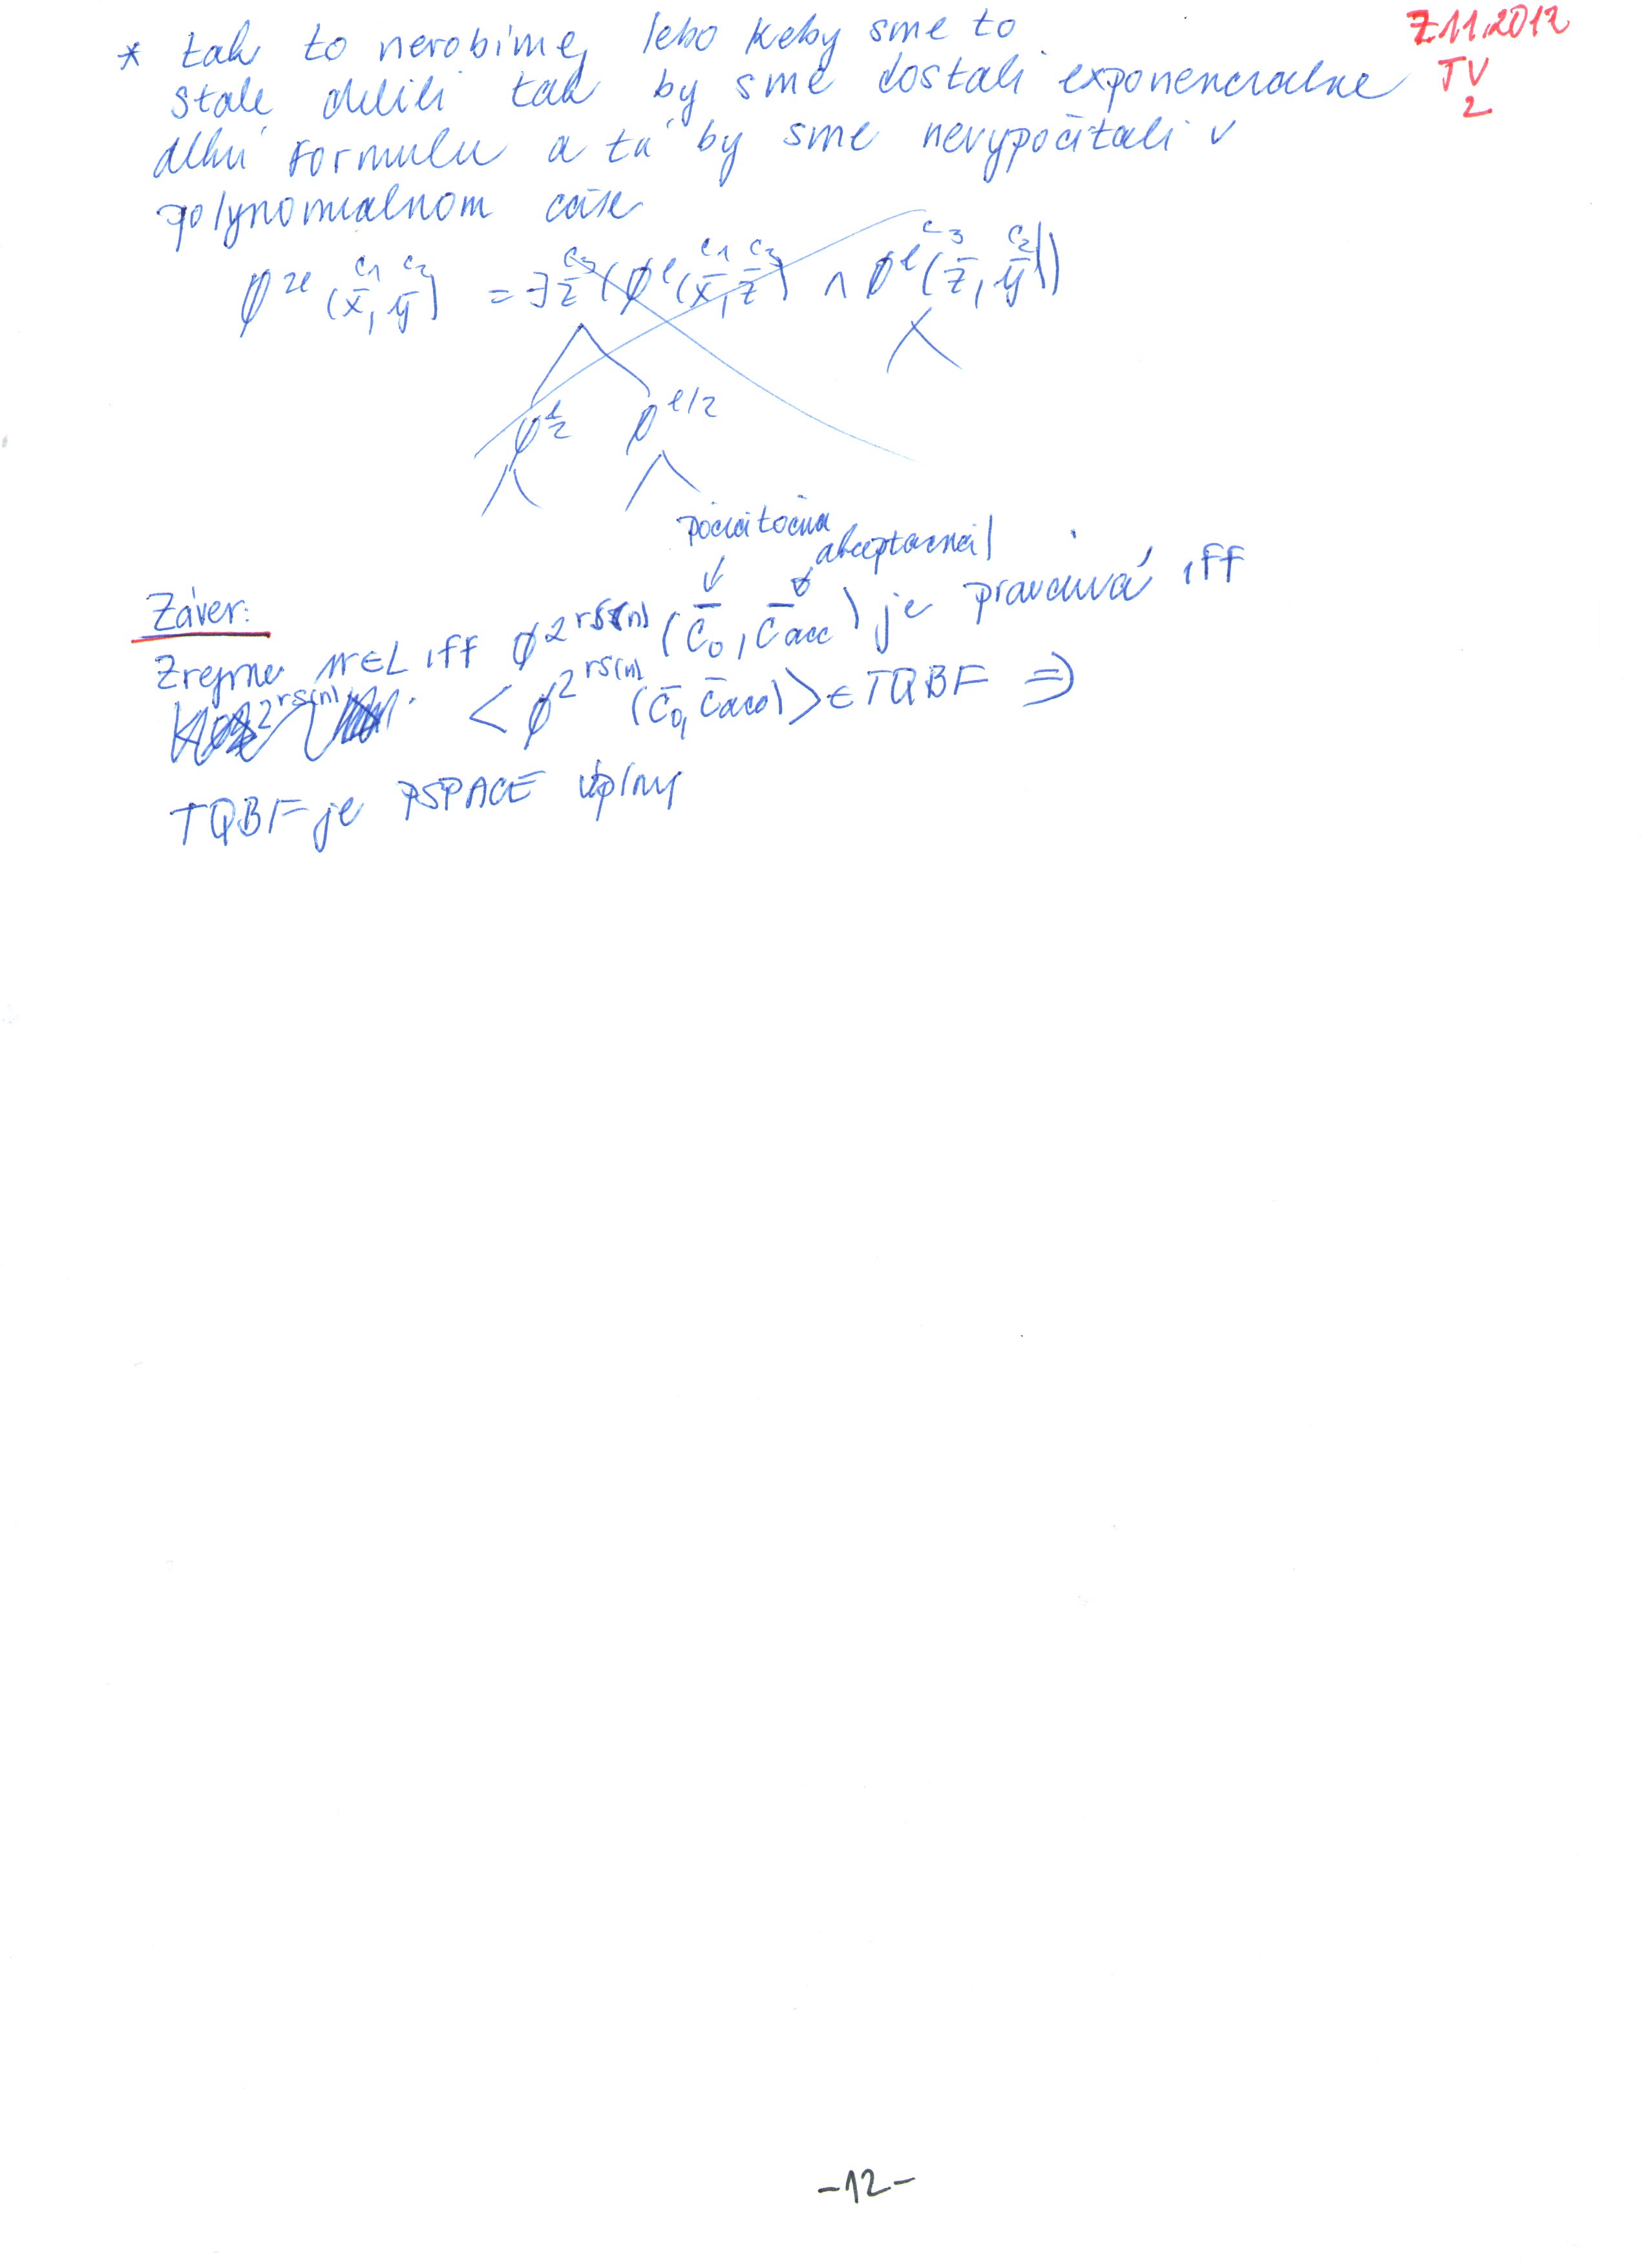 7.11.2012
TV
2
* tak to nerobíme, lebo keby sme to
stale delili tak by sme dostali exponencialne
dlhú formulu a tá by sme nevypočítali v
polynomialnom čase
c1 c2 c3 c1 c3 c3 c2
φ^2l (x̄, ȳ) = ∃z̄ (φ^l(x̄, z̄) ∧ φ^l(z̄, ȳ))
φ^l/2 φ^l/2
počiatočná
akceptačná
Záver:
Zrejme w∈L iff φ^2^rS(n) (c̄0, c̄acc) je pravdivá iff
2^rs(n) <φ^2^rS(n) (c̄0, c̄acc)> ∈ TQBF ⇒
TQBF je PSPACE úplný
-12-